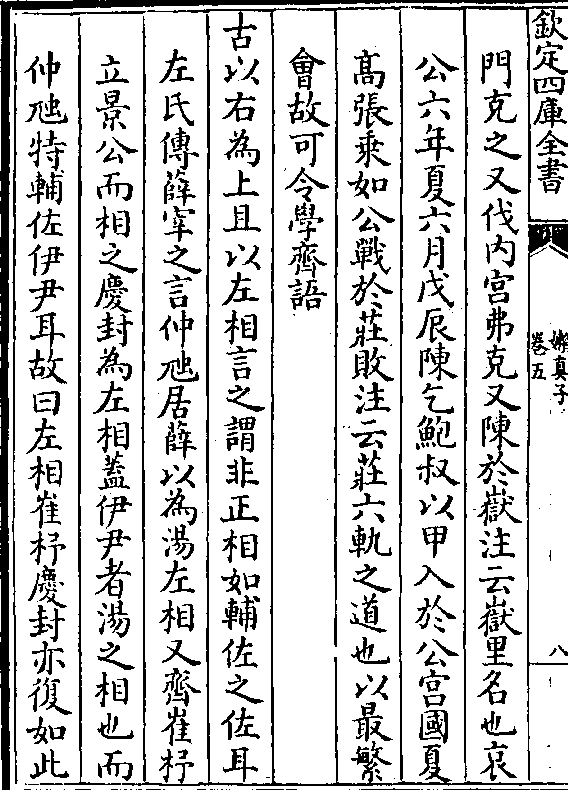 欽定四庫全書
嬾真子
卷五
八
門克之又伐内宫弗克又陳於嶽注云嶽里名也哀
公六年夏六月戊辰陳乞鮑叔以甲入於公宫國夏
髙張乘如公戰於莊敗注云莊六軌之道也以最繁
㑹故可令學齊語
古以右為上且以左相言之謂非正相如輔佐之佐耳
左氏傳薛宰之言仲虺居薛以為湯左相又齊崔杼
立景公而相之慶封為左相蓋伊尹者湯之相也而
仲虺特輔佐伊尹耳故曰左相崔杼慶封亦復如此